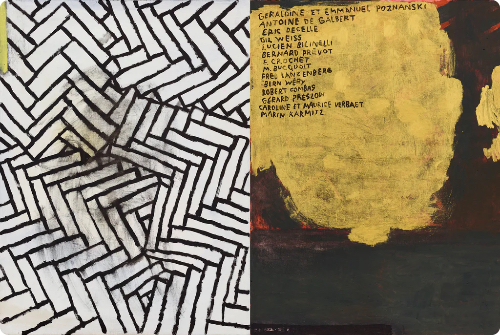 GERALDINE ET EMMANUEL POZNANSKI
ANTOINE DE GALBERT
ERIC DECELLE
GIL WEISS
LUCIEN BILINELLI
BERNARD PREVOT
F. CROCHET
M. BUCQUOIT
FRED LANZENBERG
BERN WERY
ROBERT COMBAS
GÉRARD PRESZOW
CAROLINE ET MAURICE VERBAET
MARIN KARMITZ